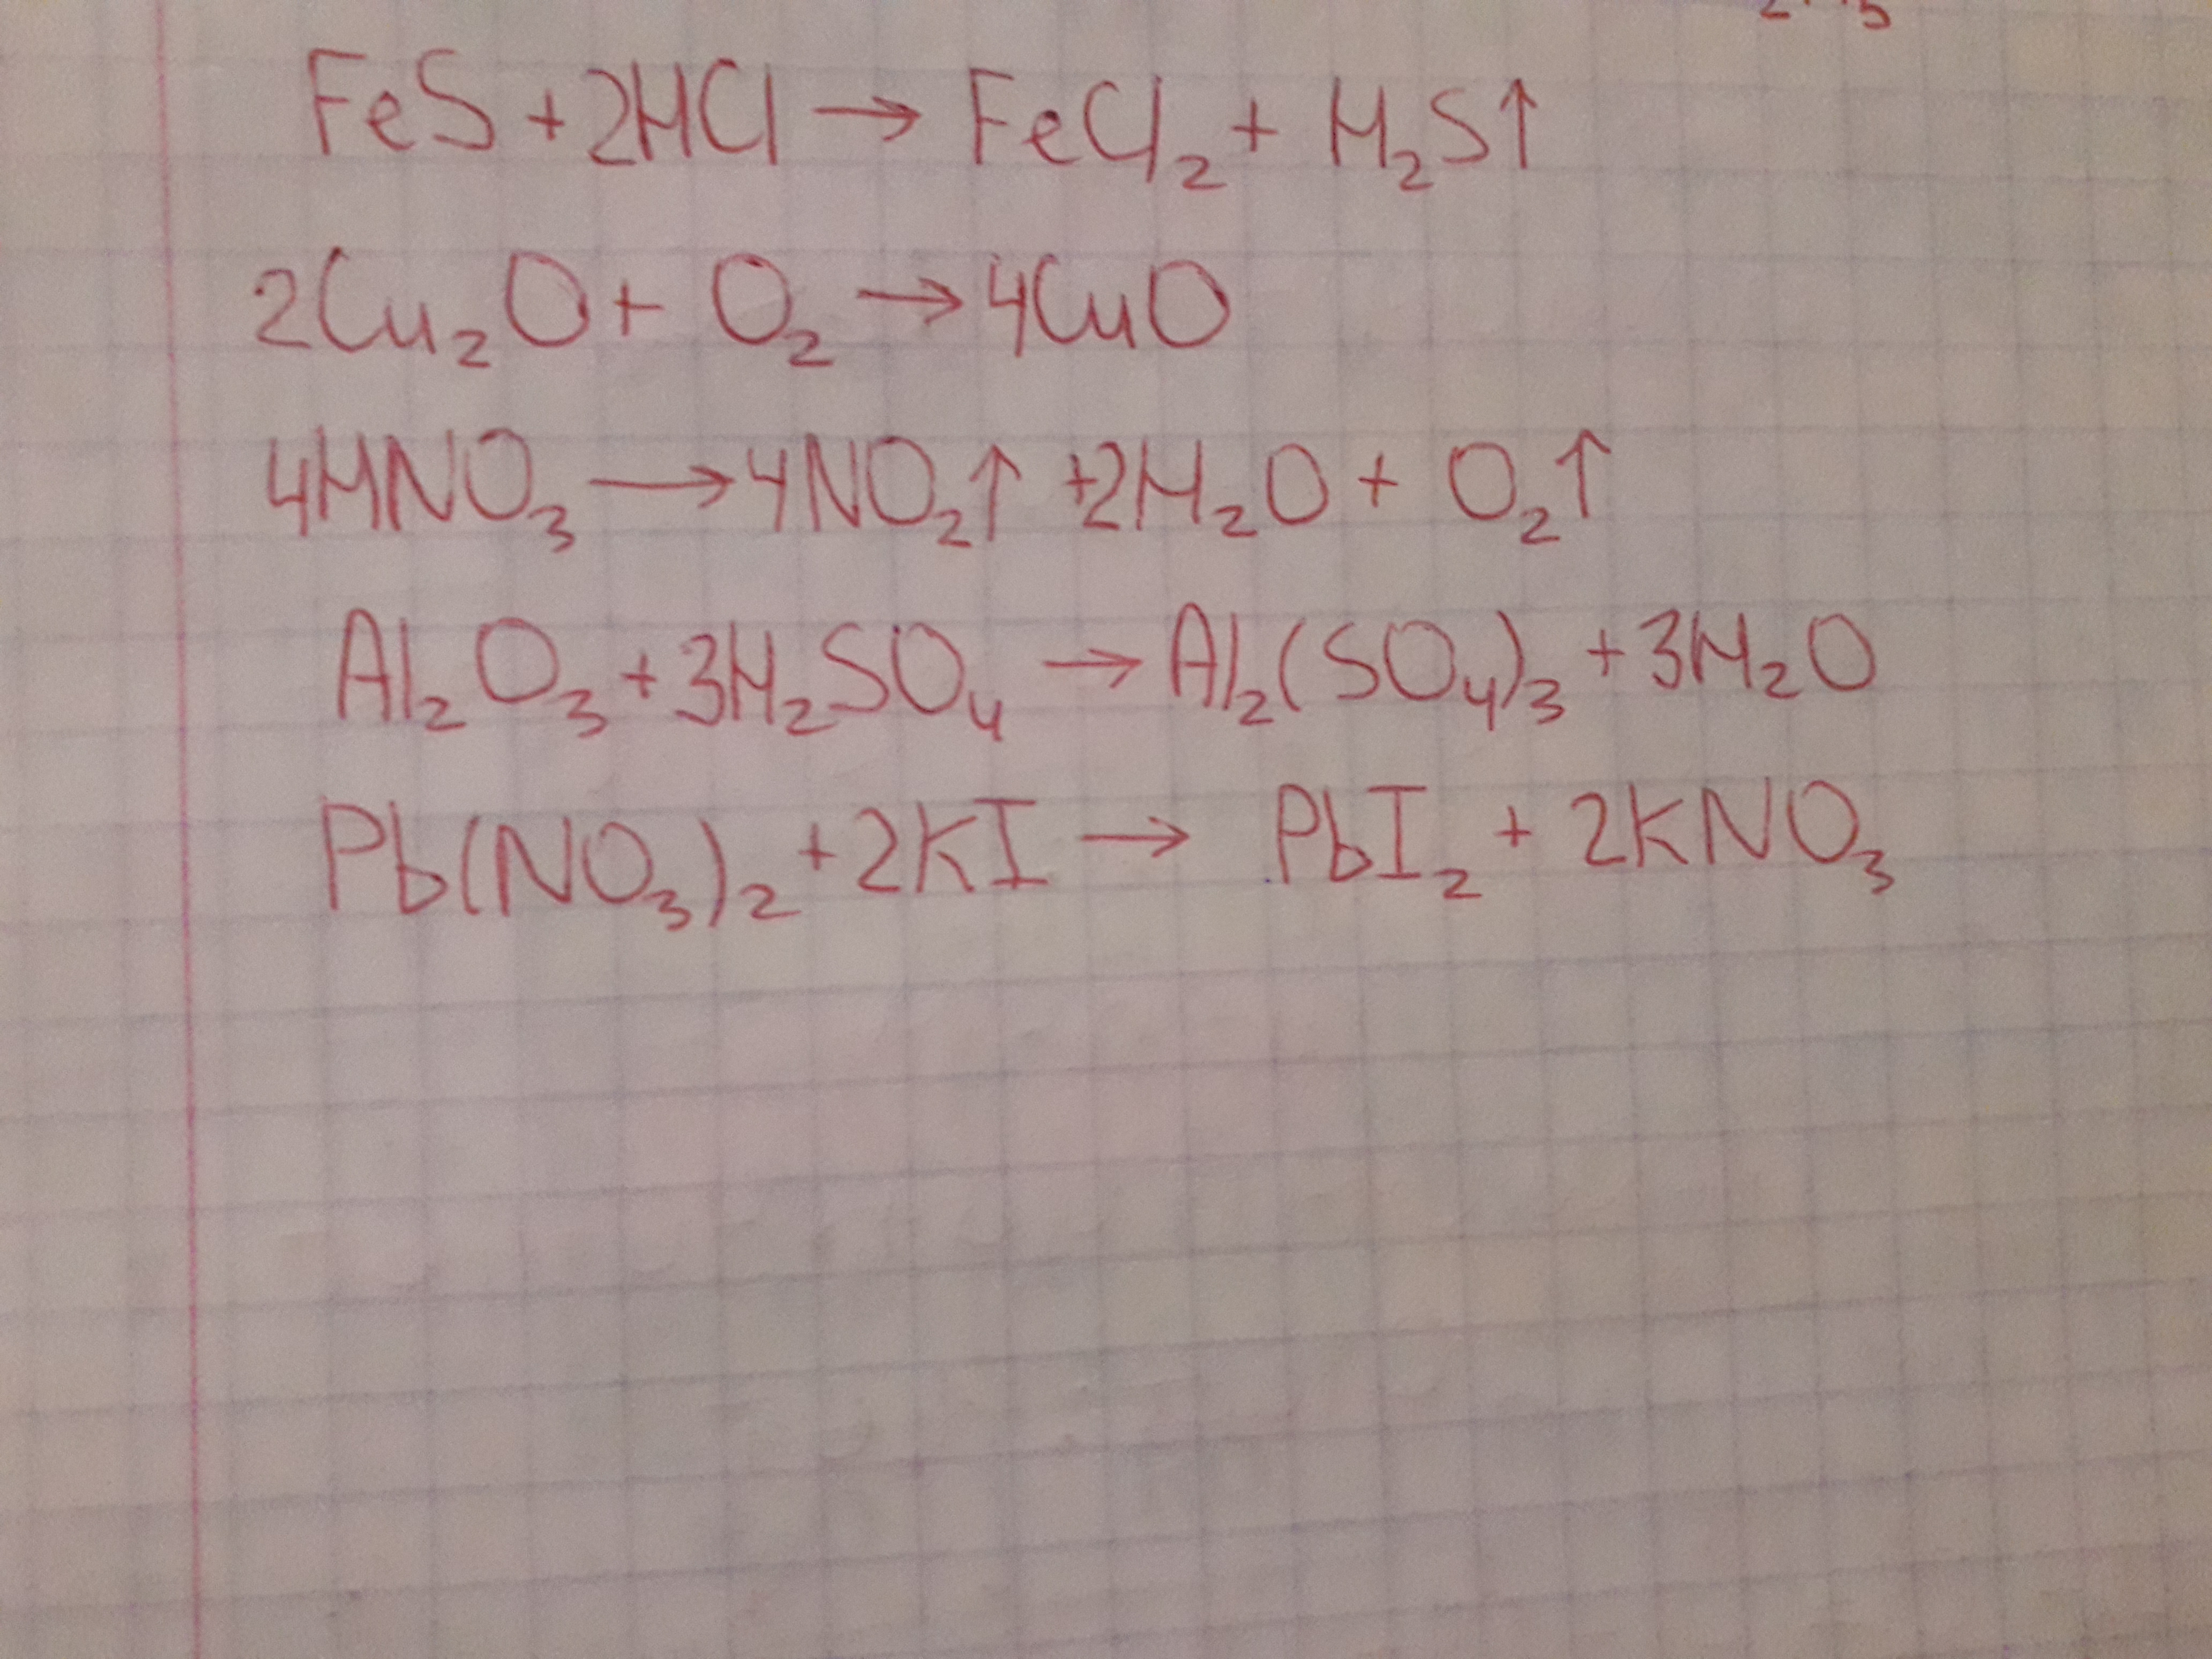 FeS + 2HCl → FeCl₂ + H₂S↑
2Cu₂O + O₂ → 4CuO
4HNO₃ → 4NO₂↑ + 2H₂O + O₂↑
Al₂O₃ + 3H₂SO₄ → Al₂(SO₄)₃ + 3H₂O
Pb(NO₃)₂ + 2KI → PbI₂ + 2KNO₃